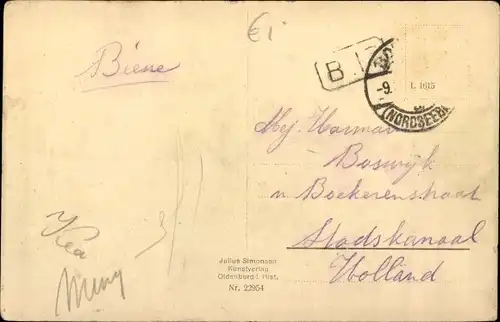 €1
Biene
B
-9.
(NORDSEEB
L 1615
Mej. Harmar
Boswyk
v. Boekerenstraat
Stadskanaal
Holland
Julius Simonsen
Kunstverlag
Oldenburg i. Hlst.
Nr. 23954